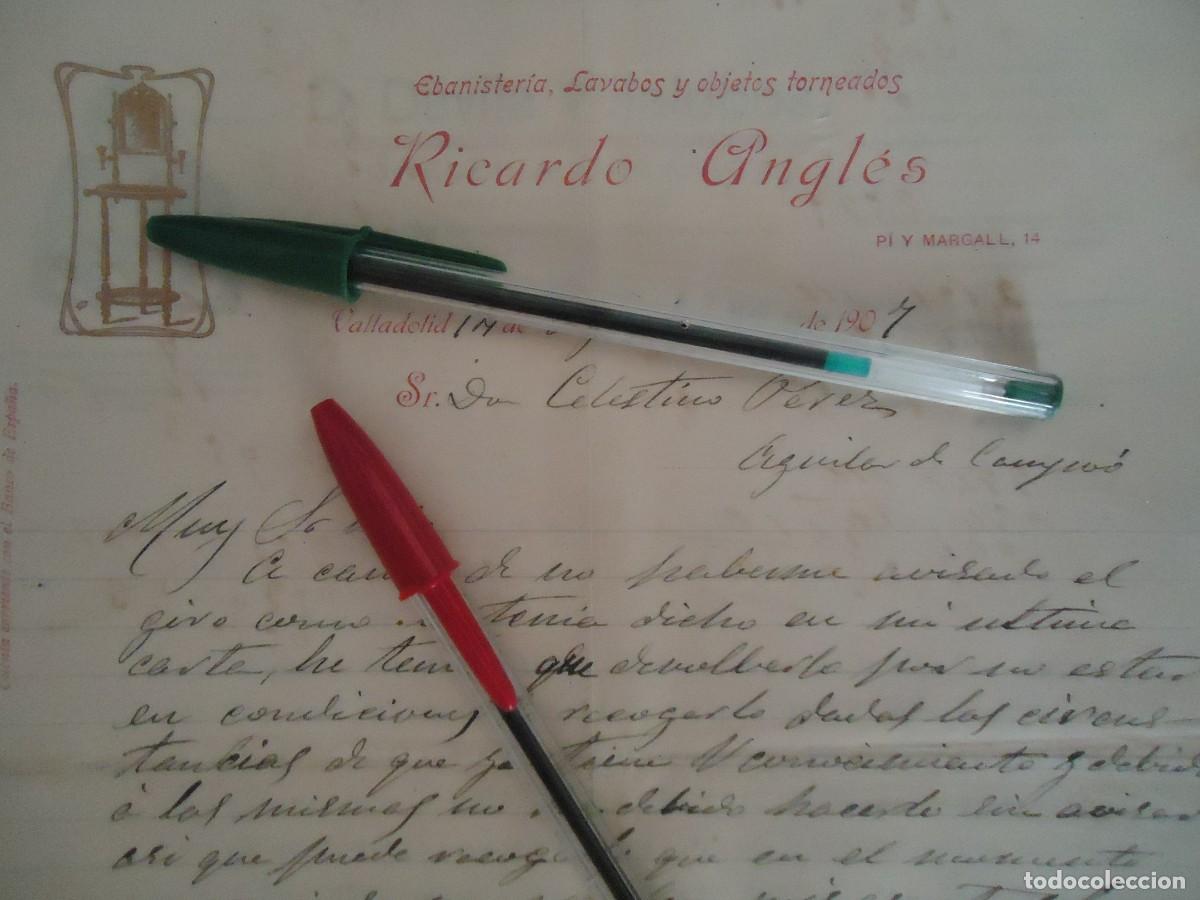 Ebanistería, Lavabos y objetos torneados
Ricardo Anglés
PÍ Y MARGALL, 14
Valladolid 17 de de 1907
Sr. Don Celestino Pérez
Aguilar de Campoó
Cuenta corriente con el Banco de España.
Muy Sr
A de no haberme avisado el
giro como tenia dicho en mi ultima
carta, he que devolberlo por no estar
en condiciones recogerlo dadas las circuns
tancias de que ya tiene V conocimiento y debido
á las mismas no debido hacerlo sin avisar
asi que puede que en el momento
todocoleccion